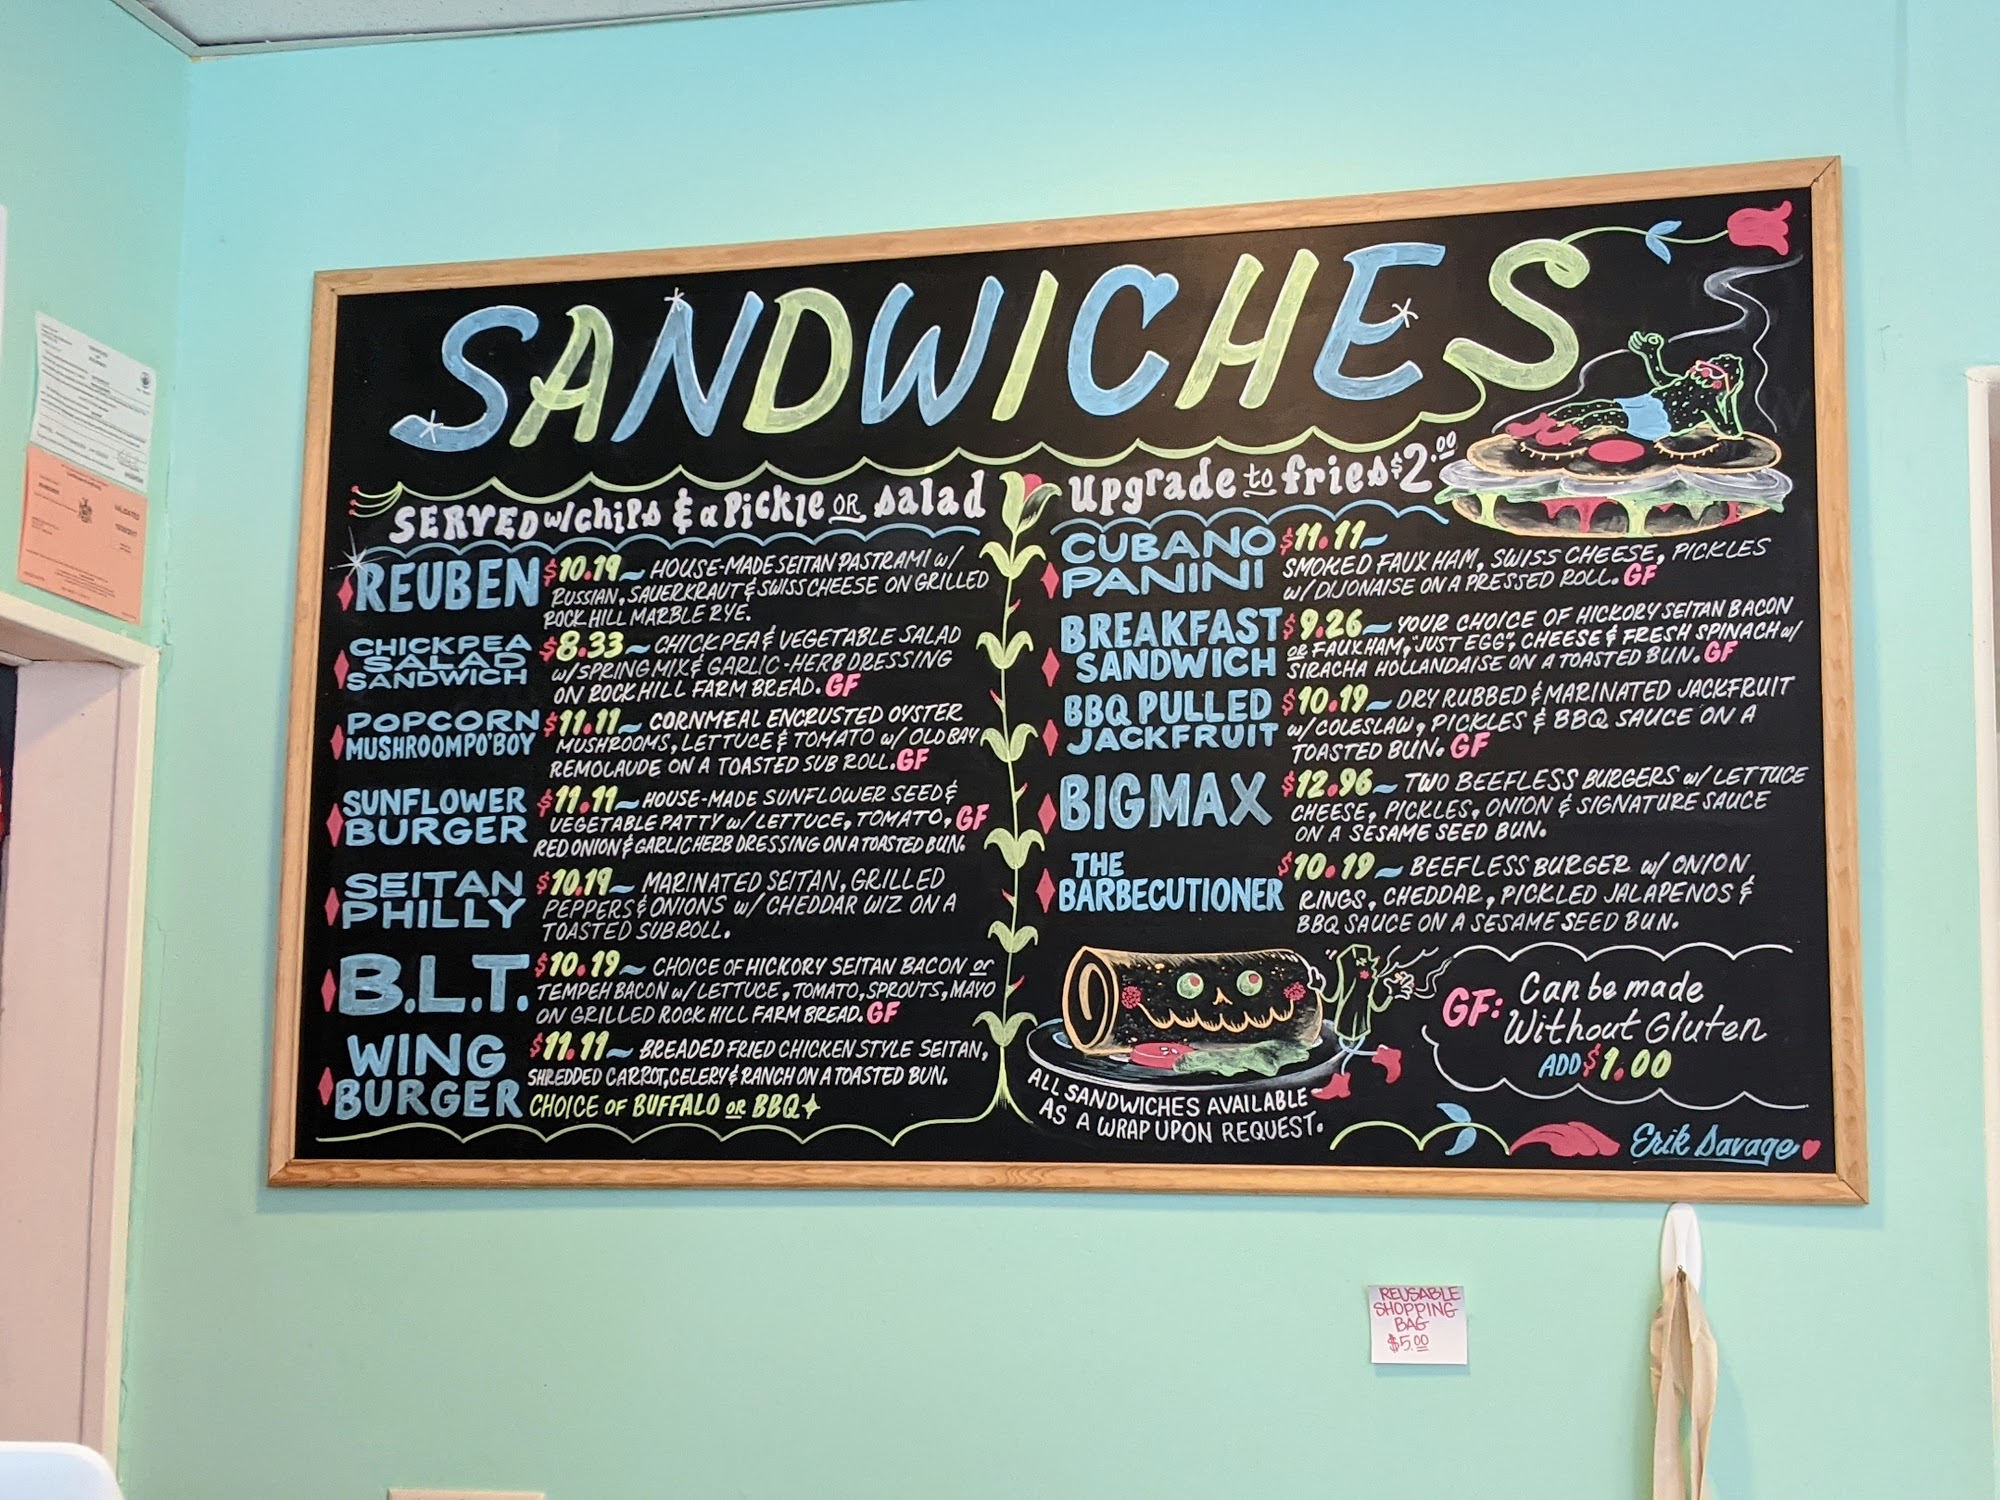 SANDWICHES
SERVED w/chips & a Pickle or salad
Upgrade to fries $2.00
REUBEN $10.19~ HOUSE-MADE SEITAN PASTRAMI w/
RUSSIAN, SAUERKRAUT & SWISS CHEESE ON GRILLED
ROCK HILL MARBLE RYE.
CHICKPEA
SALAD
SANDWICH
$8.33~ CHICKPEA & VEGETABLE SALAD
w/SPRING MIX & GARLIC-HERB DRESSING
ON ROCK HILL FARM BREAD. GF
POPCORN
MUSHROOM PO'BOY
$11.11~ CORNMEAL ENCRUSTED OYSTER
MUSHROOMS, LETTUCE & TOMATO w/ OLD BAY
REMOLAUDE ON A TOASTED SUB ROLL. GF
SUNFLOWER
BURGER
$11.11~ HOUSE-MADE SUNFLOWER SEED &
VEGETABLE PATTY w/ LETTUCE, TOMATO, GF
RED ONION & GARLIC HERB DRESSING ON A TOASTED BUN.
SEITAN
PHILLY
$10.19~ MARINATED SEITAN, GRILLED
PEPPERS & ONIONS w/ CHEDDAR WIZ ON A
TOASTED SUB ROLL.
B.L.T. $10.19~ CHOICE OF HICKORY SEITAN BACON or
TEMPEH BACON w/ LETTUCE, TOMATO, SPROUTS, MAYO
ON GRILLED ROCK HILL FARM BREAD. GF
WING
BURGER
$11.11~ BREADED FRIED CHICKEN STYLE SEITAN,
SHREDDED CARROT, CELERY & RANCH ON A TOASTED BUN.
CHOICE OF BUFFALO OR BBQ
CUBANO
PANINI
$11.11~
SMOKED FAUX HAM, SWISS CHEESE, PICKLES
w/ DIJONAISE ON A PRESSED ROLL. GF
BREAKFAST
SANDWICH
$9.26~ YOUR CHOICE OF HICKORY SEITAN BACON
OR FAUX HAM, "JUST EGG", CHEESE & FRESH SPINACH w/
SIRACHA HOLLANDAISE ON A TOASTED BUN. GF
BBQ PULLED
JACKFRUIT
$10.19~ DRY RUBBED & MARINATED JACKFRUIT
w/ COLESLAW, PICKLES & BBQ SAUCE ON A
TOASTED BUN. GF
BIG MAX $12.96~ TWO BEEFLESS BURGERS w/ LETTUCE
CHEESE, PICKLES, ONION & SIGNATURE SAUCE
ON A SESAME SEED BUN.
THE
BARBECUTIONER
$10.19~ BEEFLESS BURGER w/ ONION
RINGS, CHEDDAR, PICKLED JALAPENOS &
BBQ SAUCE ON A SESAME SEED BUN.
ALL SANDWICHES AVAILABLE
AS A WRAP UPON REQUEST.
GF: Can be made
Without Gluten
ADD $1.00
Erik Savage
REUSABLE
SHOPPING
BAG
$5.00